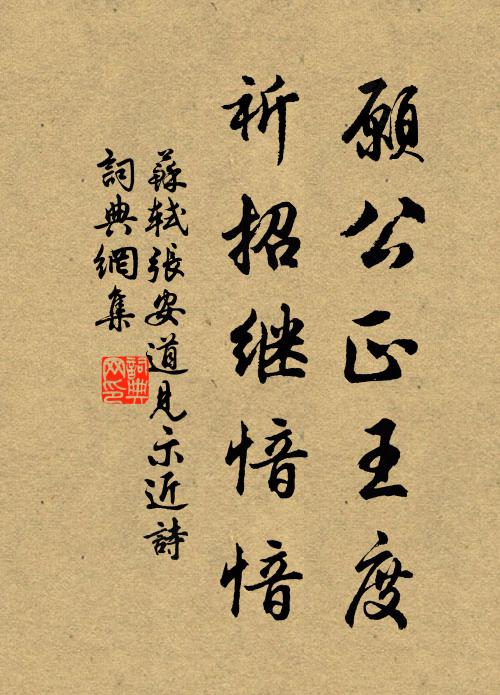 願公正王度
祈招继愔愔
蘇軾張安道見示近詩
詞典網集
詞典網印